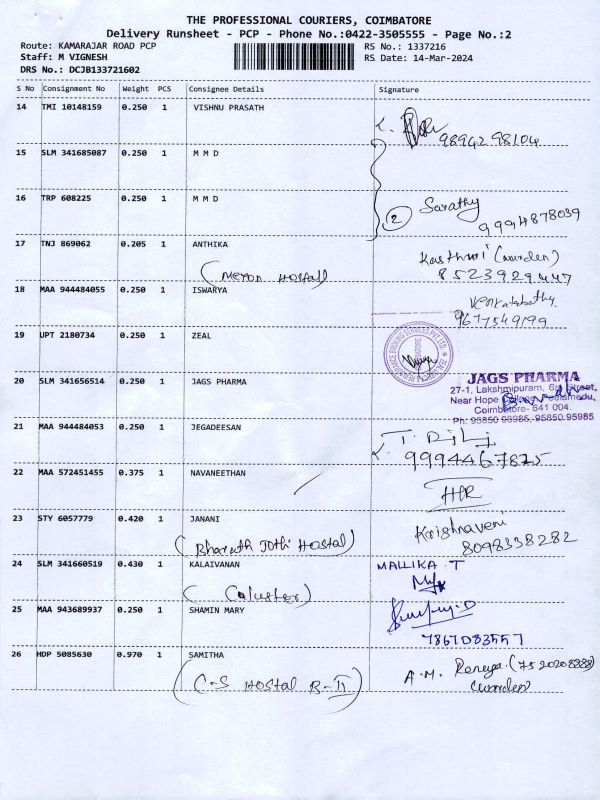 THE PROFESSIONAL COURIERS, COIMBATORE
Delivery Runsheet - PCP - Phone No.:0422-3505555 - Page No.:2
Route: KAMARAJAR ROAD PCP
RS No.: 1337216
Staff: M VIGNESH
RS Date: 14-Mar-2024
DRS No.: DCJB133721602
S No Consignment No Weight PCS Consignee Details Signature
14 TMI 10148159 0.250 1 VISHNU PRASATH
9894298104
15 SLM 341685087 0.250 1 M M D
16 TRP 608225 0.250 1 M M D
2 Sarathy
9994878039
17 TNJ 869062 0.205 1 ANTHIKA
(Meron Hostall)
Kasthuri (warden)
8523929447
18 MAA 944484055 0.250 1 ISWARYA
Venkatabathy
9677549199
19 UPT 2180734 0.250 1 ZEAL
20 SLM 341656514 0.250 1 JAGS PHARMA
JAGS PHARMA
27-1, Lakshmipuram, Street,
Near Hope College, Peelamedu,
Coimbatore- 641 004.
Ph: 95850 95985, 95850 95985
21 MAA 944484053 0.250 1 JEGADEESAN
9994467825
22 MAA 572451455 0.375 1 NAVANEETHAN
HR
23 STY 6057779 0.420 1 JANANI
(Bharath Jothi Hostal)
Krishnaveni
8098338282
24 SLM 341660519 0.430 1 KALAIVANAN
(Caluster)
MALLIKA . T
25 MAA 943689937 0.250 1 SHAMIN MARY
7867083557
26 HDP 5085630 0.970 1 SAMITHA
(C-S Hostal B-II)
A.M. Renuga. (7520208888)
(warden)